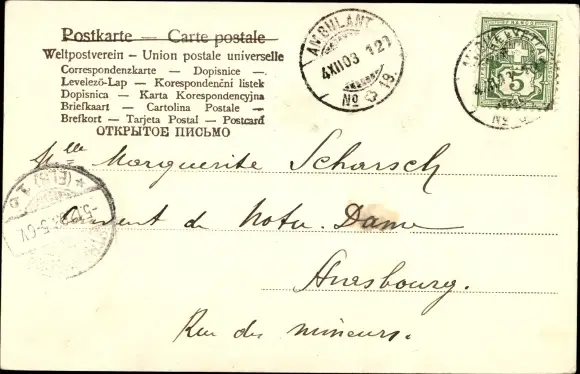 Postkarte — Carte postale
Weltpostverein – Union postale universelle
Correspondenzkarte — Dopisnice —
Levelező-Lap — Korespondenční listek
Dopisnica — Karta Korespondencyjna
Briefkaart — Cartolina Postale —
Brefkort — Tarjeta Postal — Postcard
ОТКРЫТОЕ ПИСЬМО
AMBULANT
4XII03 12
No 19.
5
Mlle Marguerite Scharsch
Couvent de Notre Dame
Strasbourg.
Rue des mineurs.